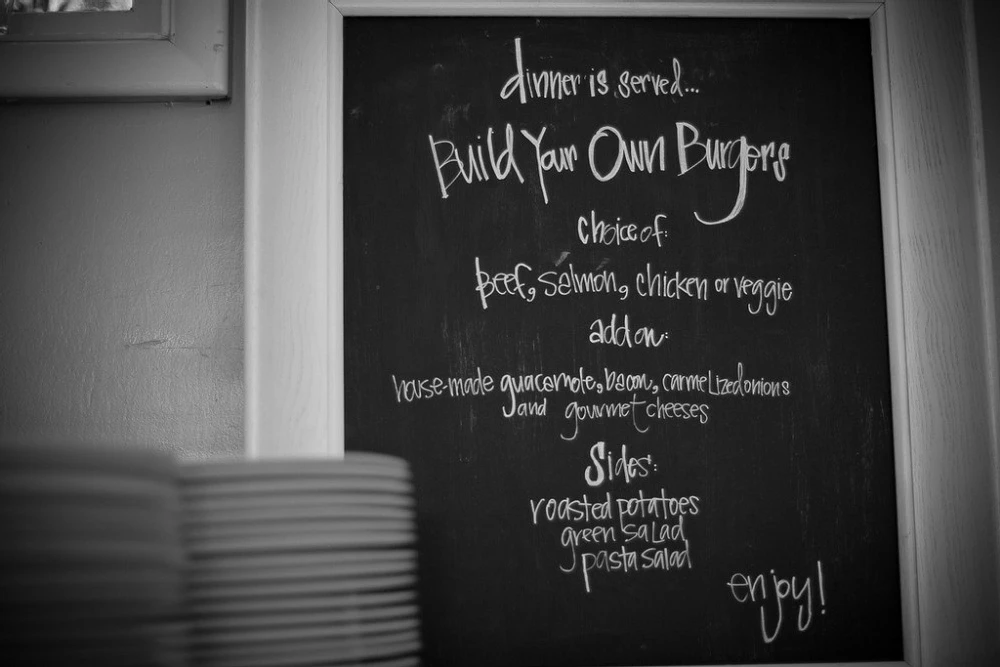 dinner is served...
Build Your Own Burgers
choice of:
beef, salmon, chicken or veggie
add on:
house-made guacamole, bacon, carmelized onions
and gourmet cheeses
Sides:
roasted potatoes
green salad
pasta salad
enjoy!